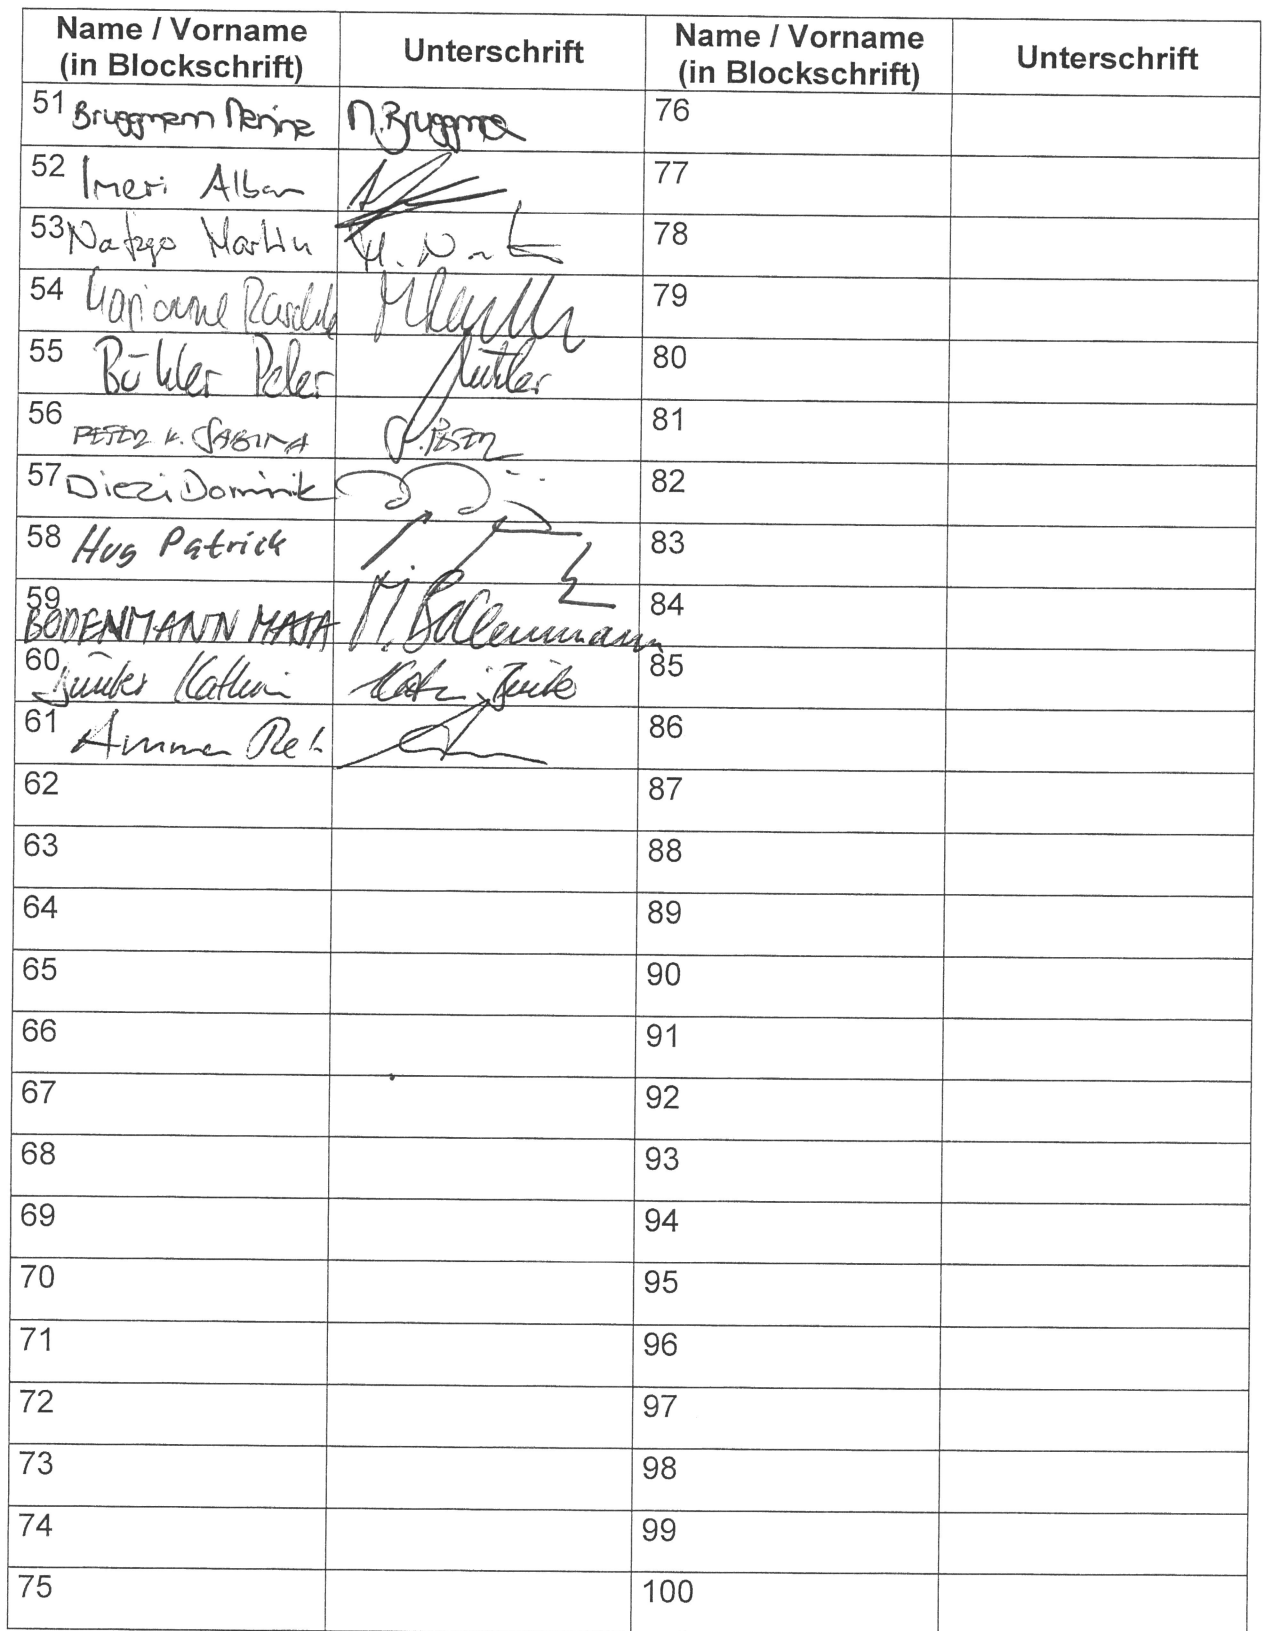 Name / Vorname
(in Blockschrift)
Unterschrift
Name / Vorname
(in Blockschrift)
Unterschrift
51 Bruggmann M. Bruggma 76
52 Imeri Alban 77
53 Martin 78
54 Marianne 79
55 Bühler Peter Bühler 80
56 PETER K. SABINA S. PETER 81
57 Diezi Dominik 82
58 Hug Patrick 83
59 BODENMANN MAJA M. Bodenmann 84
60 85
61 Amman 86
62 87
63 88
64 89
65 90
66 91
67 92
68 93
69 94
70 95
71 96
72 97
73 98
74 99
75 100